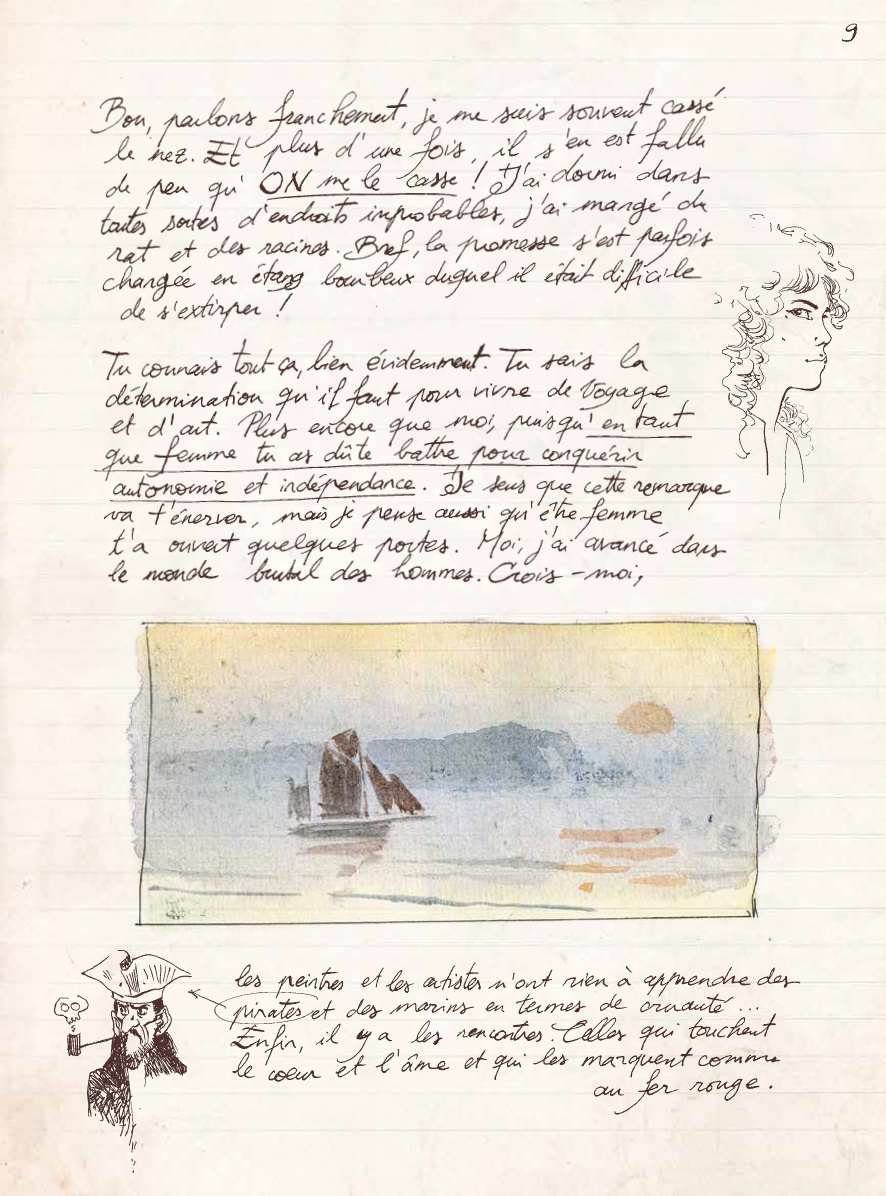 9
Bon, parlons franchement, je me suis souvent cassé
le nez. Et plus d'une fois, il s'en est fallu
de peu qu'ON me le casse ! J'ai dormi dans
toutes sortes d'endroits improbables, j'ai mangé du
rat et des racines. Bref, la promesse s'est parfois
changée en étang bourbeux duquel il était difficile
de s'extirper !
Tu connais tout ça, bien évidemment. Tu sais la
détermination qu'il faut pour vivre de Voyage
et d'art. Plus encore que moi, puisqu'en tant
que femme tu as dûte battre pour conquérir
autonomie et indépendance. Je sens que cette remarque
va t'énerver, mais je pense aussi qu'être femme
t'a ouvert quelques portes. Moi, j'ai avancé dans
le monde brutal des hommes. Crois-moi,
les peintres et les artistes n'ont rien à apprendre des
pirates et des marins en termes de cruauté ...
Enfin, il y a les rencontres. Celles qui touchent
le coeur et l'âme et qui les marquent comme
au fer rouge.